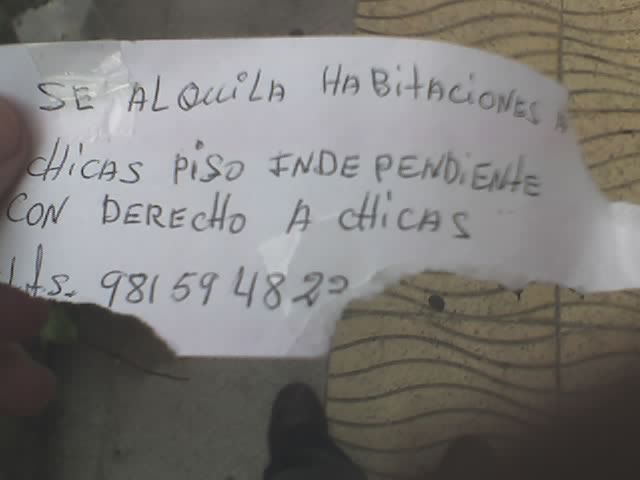 SE ALQUILA HABITACIONES A
CHICAS PISO INDEPENDIENTE
CON DERECHO A CHICAS
981 59 48 22